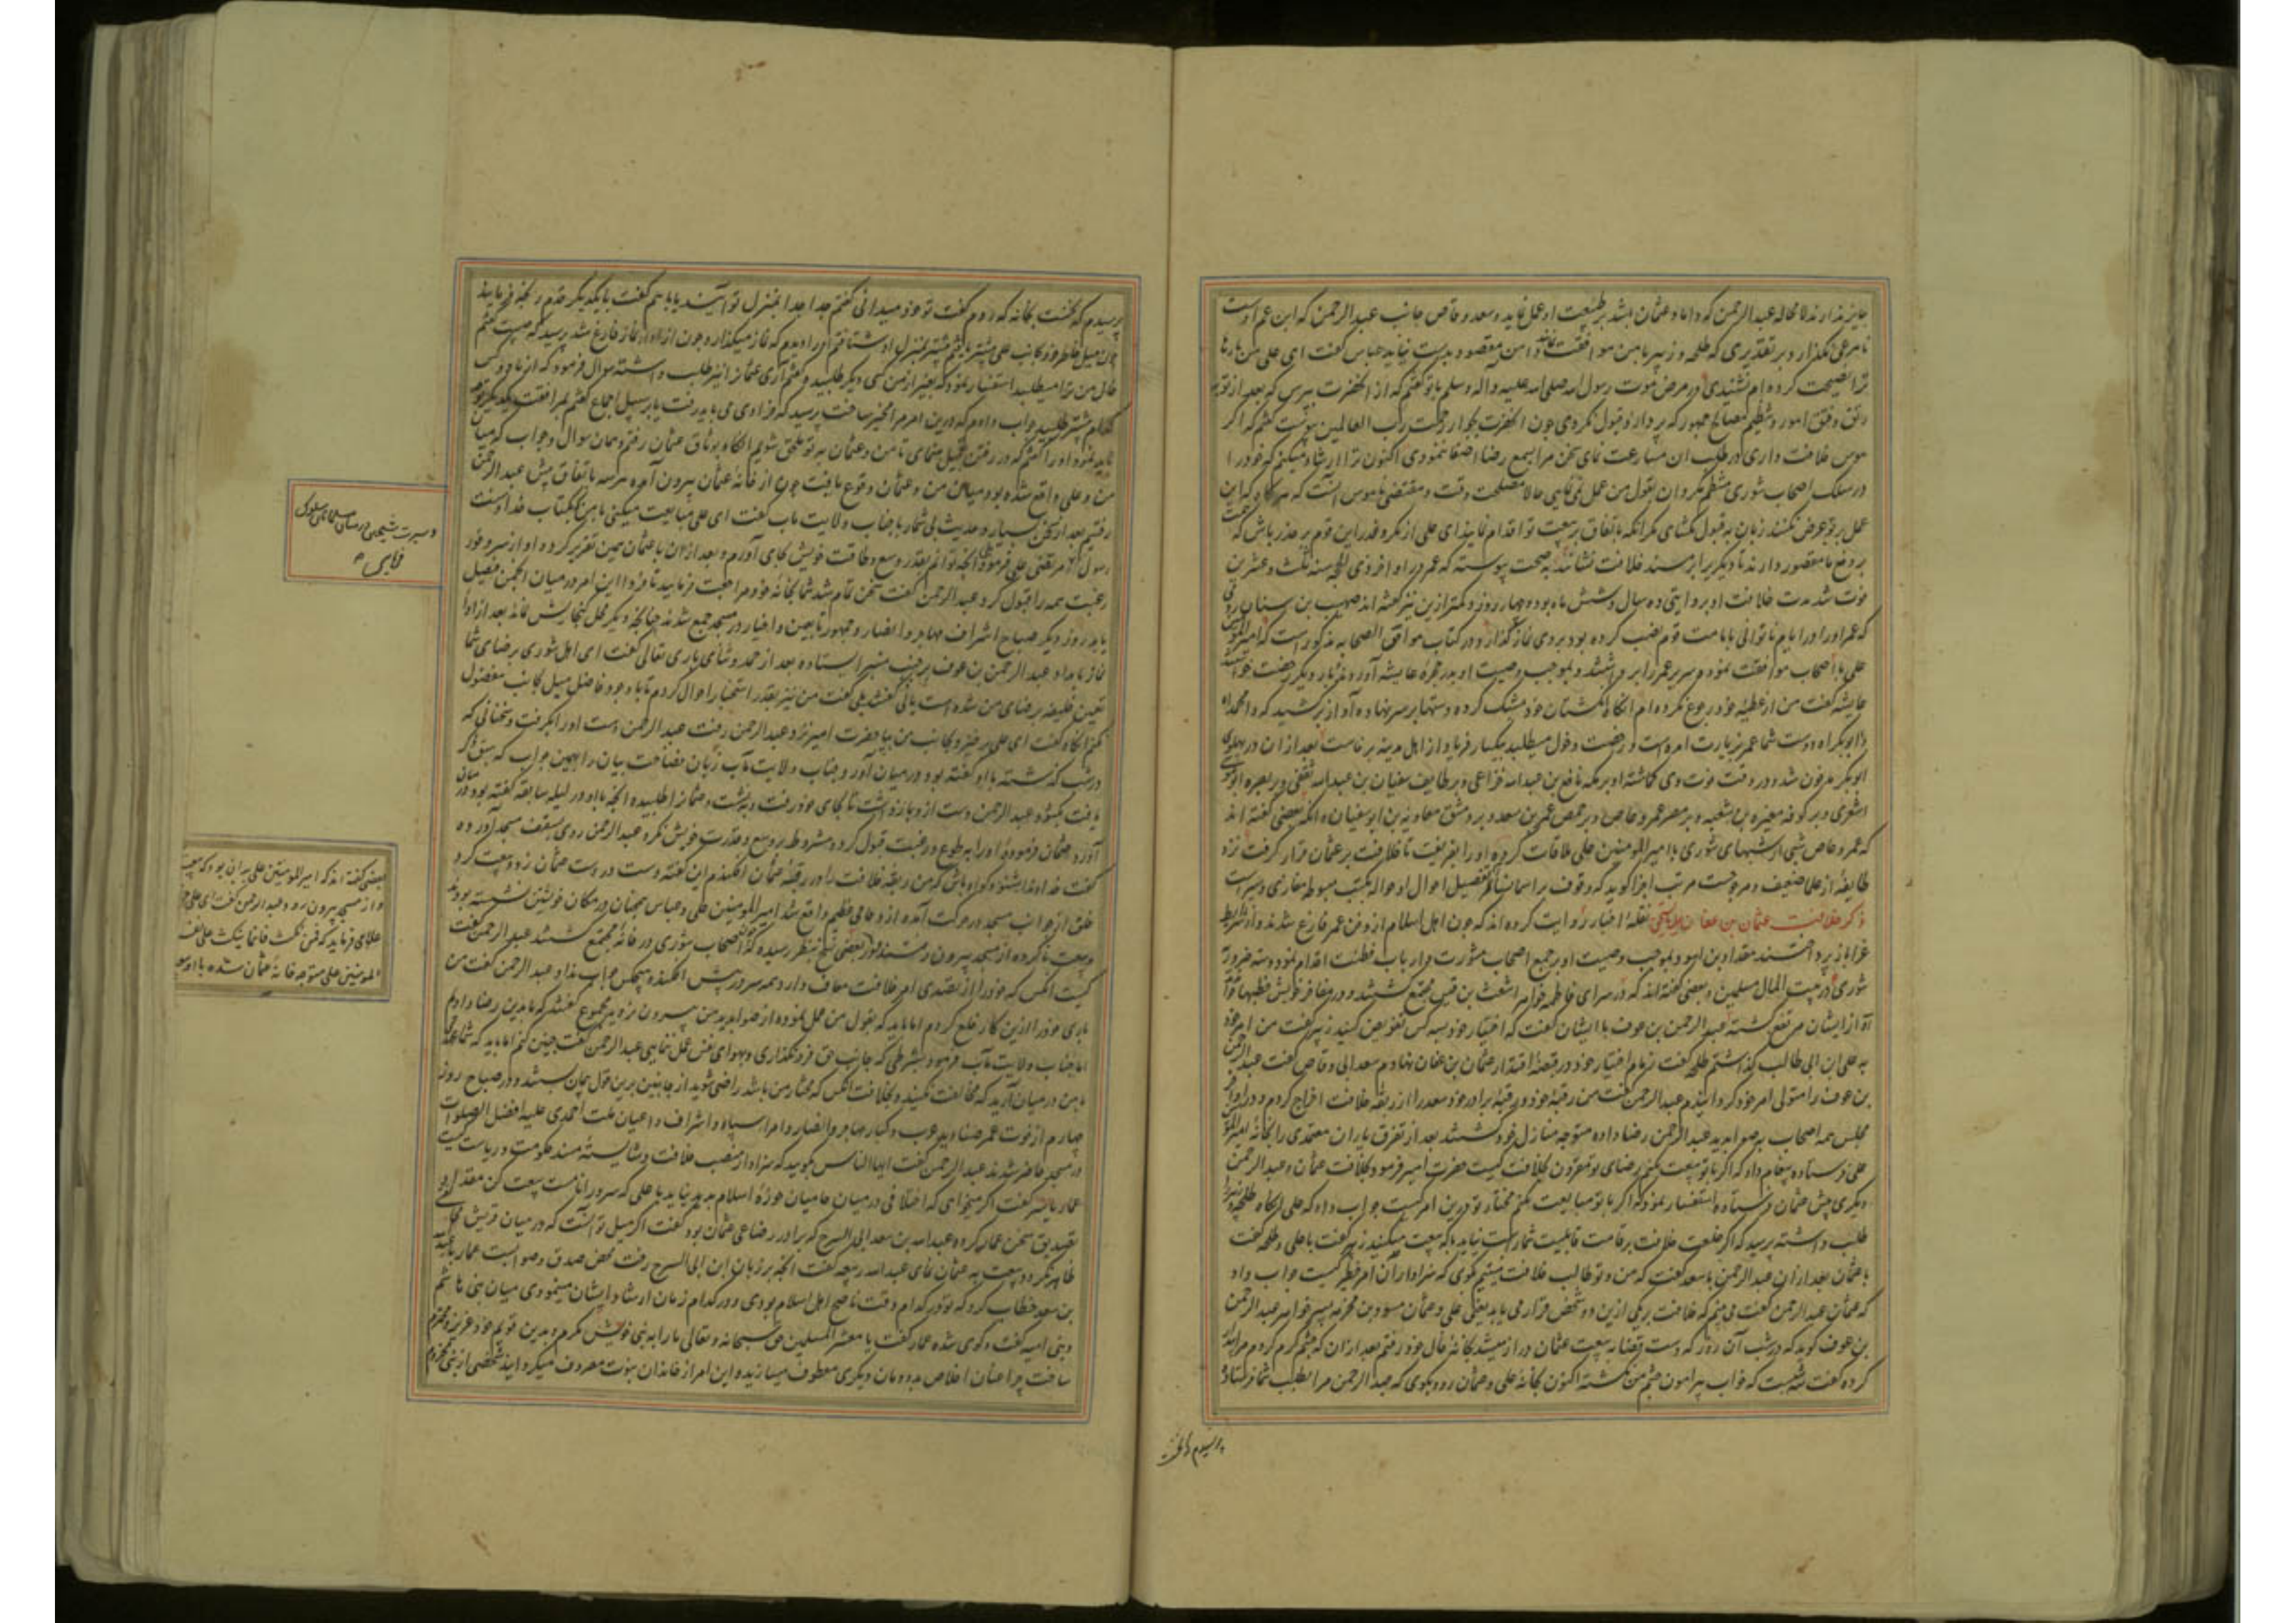 جایز ندارند لا محاله عبد الرحمن که داماد عثمان باشد بر طبیعت او عمل نماید و سعد وقاص جانب عبد الرحمن که ابن عم اوست
نامرعی نگذارد و بر تقدیری که طلحه و زبیر با من موافقت نمایند دامن مقصود بدست نیاید عباس گفت ای علی من بارها
ترا نصیحت کرده ام نشنیدی در مرض موت رسول الله صلی الله علیه واله وسلم با تو گفتم که از آنحضرت بپرس که بعد از تو به
رتق و فتق امور و تنظیم مصالح جمهور که پردازد قبول نکردی چون آنحضرت بجوار رحمت رب العالمین پیوست گفتم که اگر
هوس خلافت داری در طلب آن مسارعت نمای سخن مرا بسمع رضا اصغا ننمودی اکنون ترا ارشاد میکنم که خود را
در سلک اصحاب شوری منتظم مگردان بقول من عمل نمی کنی حالا مصلحت وقت و مقتضی ناموس آنست که هرگاه که این
عمل بر تو عرض کنند زبان به قبول نگشای مگر آنکه باتفاق بر بیعت تو اقدام نمایند ای علی از مکر و غدر این قوم بر حذر باش که
بر دفع ما مقصور دارند تا دیگریرا بر مسند خلافت نشانند به صحت پیوسته که عمر در اواخر ذی الحجه سنه ثلث و عشرین
فوت شد مدت خلافت او بروایتی ده سال و شش ماه بوده و چهار روز و کمتر ازین نیز گفته اند صهیب بن سنان رومی
که عمر او را در ایام ناتوانی بامامت قوم نصب کرده بود بر وی نماز گذارد و در کتاب موافق الصحابه مذکور است که امیر المومنین
علی با اصحاب موافقت نموده سریر عمر را برداشتند و بموجب وصیت او بدر حجره عایشه آورده بار دیگر رخصت خواستند
عایشه گفت من از عطیه خود رجوع نکرده ام آنگاه انگشتان خود مشبک کرده دستها بر سر نهاده آواز برکشید که وامحمداه
وا ابوبکراه دوست شما عمر بزیارت آمده است و رخصت دخول میطلبد بیکبار فریاد از اهل مدینه برخاست بعد از آن در پهلوی
ابوبکر مدفون شد و در وقت فوت وی گماشته او بر مکه نافع بن عبد الله خزاعی و بر طایف سفیان بن عبد الله ثقفی و بر بصره ابو موسی
اشعری و بر کوفه مغیره بن شعبه و بر مصر عمرو عاص و بر حمص عمیر بن سعد و بر دمشق معاویه بن ابو سفیان و آنکه بعضی گفته اند
که عمرو عاص شبی از شبهای شوری با امیر المومنین علی ملاقات کرده او را بفریفت تا خلافت بر عثمان قرار گرفت نزد
طایفه از علما ضعیف و مرجوحست مرتب اجزا گوید که وقوف بر اسمای نیاکان و تفصیل احوال او حواله بکتب مبسوط مغازی و سیر است
ذکر خلافت عثمان بن عفان نقله اخبار روایت کرده اند که چون اهل اسلام از دفن عمر فارغ شدند و از شرایط
عزا باز پرداختند مقداد بن اسود بموجب وصیت او در جمع اصحاب مشورت و ارباب فطنت اقدام نمود و سه روز
شوری در بیت المال مسلمین و بعضی گفته اند که در سرای فاطمه خواهر اشعث بن قیس مجتمع گشتند و در مفاخر خویش خطبها خواندند
آه از ایشان مرتفع گشته عبد الرحمن بن عوف با ایشان گفت که اختیار خود بسه کس تفویض کنید زبیر گفت من امر خود
به علی ابن ابی طالب گذاشتم طلحه گفت زمام اختیار خود در قبضه اقتدار عثمان بن عفان نهادم سعد ابی وقاص گفت عبد الرحمن
بن عوف را متولی امر خود گردانیدم عبد الرحمن گفت من رقبه خود و رقبه برادر خود سعد را از ربقه خلافت اخراج کردم و در اواخر
مجلس همه اصحاب بصوابدید عبد الرحمن رضا داده متوجه منازل خود گشتند بعد از تفرق یاران معتمدی را بخانه امیر المومنین
علی فرستاده پیغام داد که اگر با تو بیعت نکنم رضای تو مقرون بخلافت کیست حضرت امیر فرمود بخلافت عثمان و عبد الرحمن
دیگری پیش عثمان فرستاده استفسار نمود که اگر با تو مبایعت نکنم مختار تو درین امر کیست جواب داد که علی آنگاه طلحه و زبیر را
طلب داشته پرسید که اگر خلعت خلافت بر قامت قابلیت شما راست نیاید با که بیعت میکنید زبیر گفت با علی و طلحه گفت
با عثمان بعد از آن عبد الرحمن با سعد گفت که من و تو طالب خلافت نیستیم گوی که سزاوار آن امر خطیر کیست جواب داد
که عثمان عبد الرحمن گفت می بینم که خلافت بر یکی ازین دو شخص قرار می یابد یعنی علی و عثمان مسور بن مخرمه پسر خواهر عبد الرحمن
بن عوف گوید که در شب آن روز که دست قضا بر بیعت عثمان دراز میشد بخانه خال خود رفتم بعد از آن که چشم گرم کردم مرا بیدار
کرده گفت سه شبست که خواب پیرامون چشم من نگشته اکنون بخانه علی و عثمان رو و بگوی که عبد الرحمن مرا بطلب شما فرستاده
پرسیدم که نخست
پرسیدم که نخست بخانه که روم گفت تو خود میدانی گفتم جدا جدا بمنزل تو آیند یا با هم گفت با یکدیگر قدم رنجه فرمایند
چون میل خاطر خود بجانب علی بیشتر یافتم بیشتر بمنزل او شتافتم او را دیدم که نماز میگذارد چون از اداء نماز فارغ شد پرسید که چیست گفتم
خال من ترا میطلبد استفسار نمود که بغیر از من کسی دیگر طلبید گفتم آری عثمانرا نیز طلب داشته سوال فرمود که از ما دو کس
کدام پیشتر طلبید جواب دادم که درین امر مرا مخیر ساخت پرسید که فرادی می باید رفت یا بر سبیل اجماع گفتم بمرافقت یکدیگر توجه
باید نمود او را گفتم که در رفتن تعجیل منمای تا من و عثمان به تو ملحق شویم آنگاه بوثاق عثمان رفتم و همان سوال و جواب که میان
من و علی واقع شده بود میان من و عثمان وقوع یافت چون از خانه عثمان بیرون آمد هر سه باتفاق پیش عبد الرحمن
رفتیم بعد از سخن بسیار و حدیث بی شمار با جناب ولایت ماب گفت ای علی مبایعت میکنی با من بکتاب خدا و سنت
رسول الله مرتضی علی فرمود آنچه توانم بقدر وسع و طاقت خویش بجای آورم و بعد از آن با عثمان همین تقریر کرده او از سر وفور
رغبت همه را قبول کرد عبد الرحمن گفت سخن تمام شد شما بخانه خود مراجعت فرمایید تا فردا این امر در میان انجمن فیصل
یابد روز دیگر صباح اشراف مهاجر و انصار و جمهور تابعین و اخیار در مسجد جمع شدند چنانچه دیگر محل گنجایش نماند بعد از ادا
نماز بامداد عبد الرحمن بن عوف بر جنب منبر ایستاده بعد از حمد و ثنای باری تعالی گفت ای اهل شوری بر ضای شما
تعیین خلیفه بر ضای من شده است یانی گفتند بلی گفت من نیز بقدر استخبار احوال کردم تا با وجود فاضل میل بجانب مفضول
نکنم آنگاه گفت ای علی برخیز و بجانب من بیا حضرت امیر نزد عبد الرحمن رفت عبد الرحمن دست او را بگرفت و سخنانی که
در شب گذشته با او گفته بود در میان آورد جناب ولایت مآب زبان فصاحت بیان را بهمین جواب که سبق ذکر
یافت بگشود عبد الرحمن دست ازو باز داشت تا بجای خود رفت و بنشست و عثمانرا طلبیده آنچه با او در لیله سابقه گفته بود در میان
آورد عثمان فرموده او را بر طوع و رغبت قبول کرد و مشروط بر وسع و قدرت خویش نکرد عبد الرحمن روی بسقف مسجد آورده
گفت خداوندا بشنو و گواه باش که من ربقه خلافت را در رقبه عثمان افکندم این گفته دست در دست عثمان زد و بیعت کرد
خلق از جوانب مسجد در حرکت آمده ازدحامی عظیم واقع شد امیر المومنین علی و عباس همچنان در مکان خویش نشسته بودند
و بیعت نا کرده از مسجد بیرون رفتند و در بعضی نسخ بنظر رسیده که چون اصحاب شوری در خانه مجتمع گشتند عبد الرحمن گفت
کیست آنکس که خود را از تقلدی امر خلافت معاف دارد همه سر در پیش افکنده هیچکس جواب نداد عبد الرحمن گفت من
باری خود را ازین کار خلع کردم اما باید که بقول من عمل نموده از صوابدید من بیرون نروید مجموع گفتند که ما بدین رضا دادیم
اما جناب ولایت مآب فرمود بشرطی که جانب حق فرو نگذاری و بهوای نفس عمل ننمایی عبد الرحمن گفت چنین کنم اما باید که شما عهدی
با من در میان آرید که مخالفت نکنید و بخلافت آنکس که مختار من باشد راضی شوید از جانبین برین قول پیمان بستند و در صباح روز
چهارم از فوت عمر صنادید عرب و کبار مهاجر و انصار و امرا سپاه و اشراف و اعیان ملت احمدی علیه افضل الصلوات
در مسجد حاضر شدند عبد الرحمن گفت ایها الناس بگویید که سزاوار منصب خلافت و شایسته مسند حکومت و ریاست کیست
عمار یاسر گفت اگر میخواهی که اختلافی در میان حامیان حوزه اسلام پدید نیاید با علی که سرور انامست بیعت کن مقداد
تصدیق سخن عمار کرده عبد الله بن سعد ابی السرح که برادر رضاعی عثمان بود گفت اگر میل تو آنست که در میان قریش مخالفتی
ظاهر نگردد بیعت به عثمان نمای عبد الله ربیعه گفت آنچه بر زبان ابن ابی السرح رفت محض صدق و صوابست عمار با عبد الله
بن سعد خطاب کرد که تو در کدام وقت ناصح اهل اسلام بودی و در کدام زمان ارشاد ایشان مینمودی میان بنی هاشم
و بنی امیه گفت و گوی شده عمار گفت یا معشر المسلمین حق سبحانه و تعالی ما را به نبی خویش مکرم و بدین قویم خود عزیز و محترم
ساخت چرا عنان اخلاص به دودمان دیگری معطوف میسازید و این امر از خاندان نبوت مصروف میگردانید شخصی از بنی مخزوم
و سیرت شیخین در میان مسلمانان سلوک
نمایی
بعضی گفته اند که امیر المومنین علی بر آن بود که بیعت
و از مسجد بیرون رود عبد الرحمن گفت ای علی
خدای فرماید که فمن نکث فانما ینکث علی نفسه
المومنین علی متوجه خانه عثمان شده با او